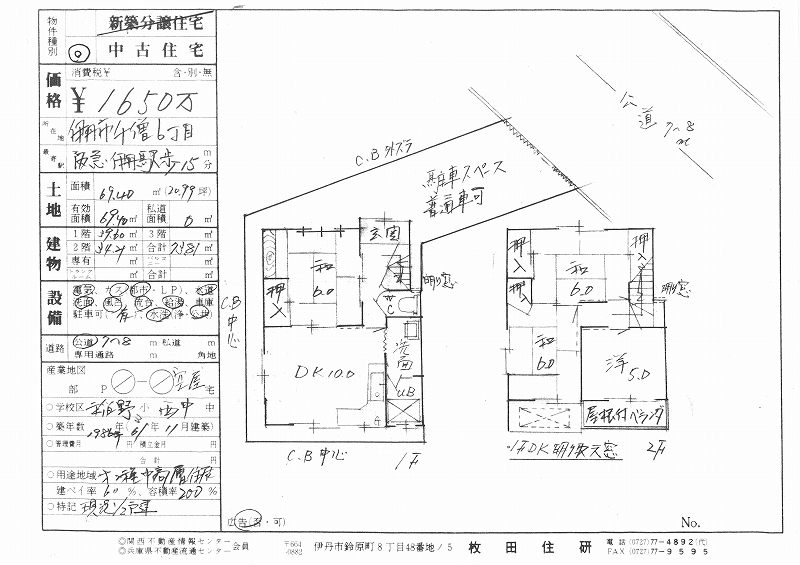 物件種別
新築分譲住宅
中古住宅
価格
消費税¥ 含・別・無
¥1650万
所在地 伊丹市千僧6丁目
最寄駅 阪急・伊丹駅歩15分 m
土地
面積 69.40㎡ (20.99坪)
有効面積 69.40㎡ 私道面積 0㎡
建物
1階 39.60㎡ 3階 ㎡
2階 34.21㎡ 合計 73.81㎡
専有 ㎡ バルコニー ㎡
トランクルーム ㎡ 合計 ㎡
設備
電気、ガス(都市・LP)、水道
洗面、風呂、流台、給湯、車庫
駐車可(有)、水洗(浄・公共)
道路
公道 7〜8 m 私道 m
専用通路 m 角地
産業地図
部 P ー 空屋 宅
○学校区 小 西中 中
○築年数 年(61年11月建築)
1986年
○管理費月 円 積立金月 円
合計 円
○用途地域 中高層住居
建ペイ率 60%、容積率 200%
○特記 現況
C.B
公道 7〜8m
駐車スペース
普通車可
玄関
和 6.0
押入
明り窓
WC
洗面
DK 10.0
UB
C.B中心
C.B中心
1F
押入
押入
押入
和 6.0
明り窓
和 6.0
洋 5.0
屋根付ベランダ
・1F DK明り取天窓
2F
広告(否・可)
No.
◎関西不動産情報センター会員
◎兵庫県不動産流通センター
〒664-0882 伊丹市鈴原町8丁目48番地ノ5 枚田住研
電話 (0727)77-4892(代)
FAX (0727)77-9595